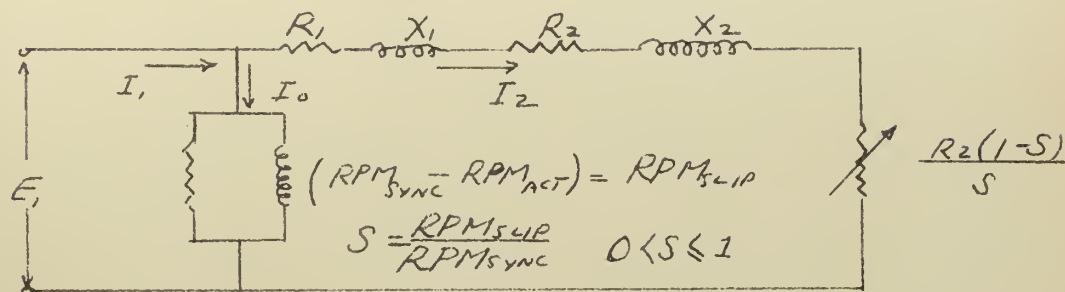 R₁ X₁ R₂ X₂
I₁ I₀ I₂
E₁
(RPM_SYNC - RPM_ACT) = RPM_SLIP
R₂(1-S)/S
S = RPM_SLIP/RPM_SYNC 0<S≤1